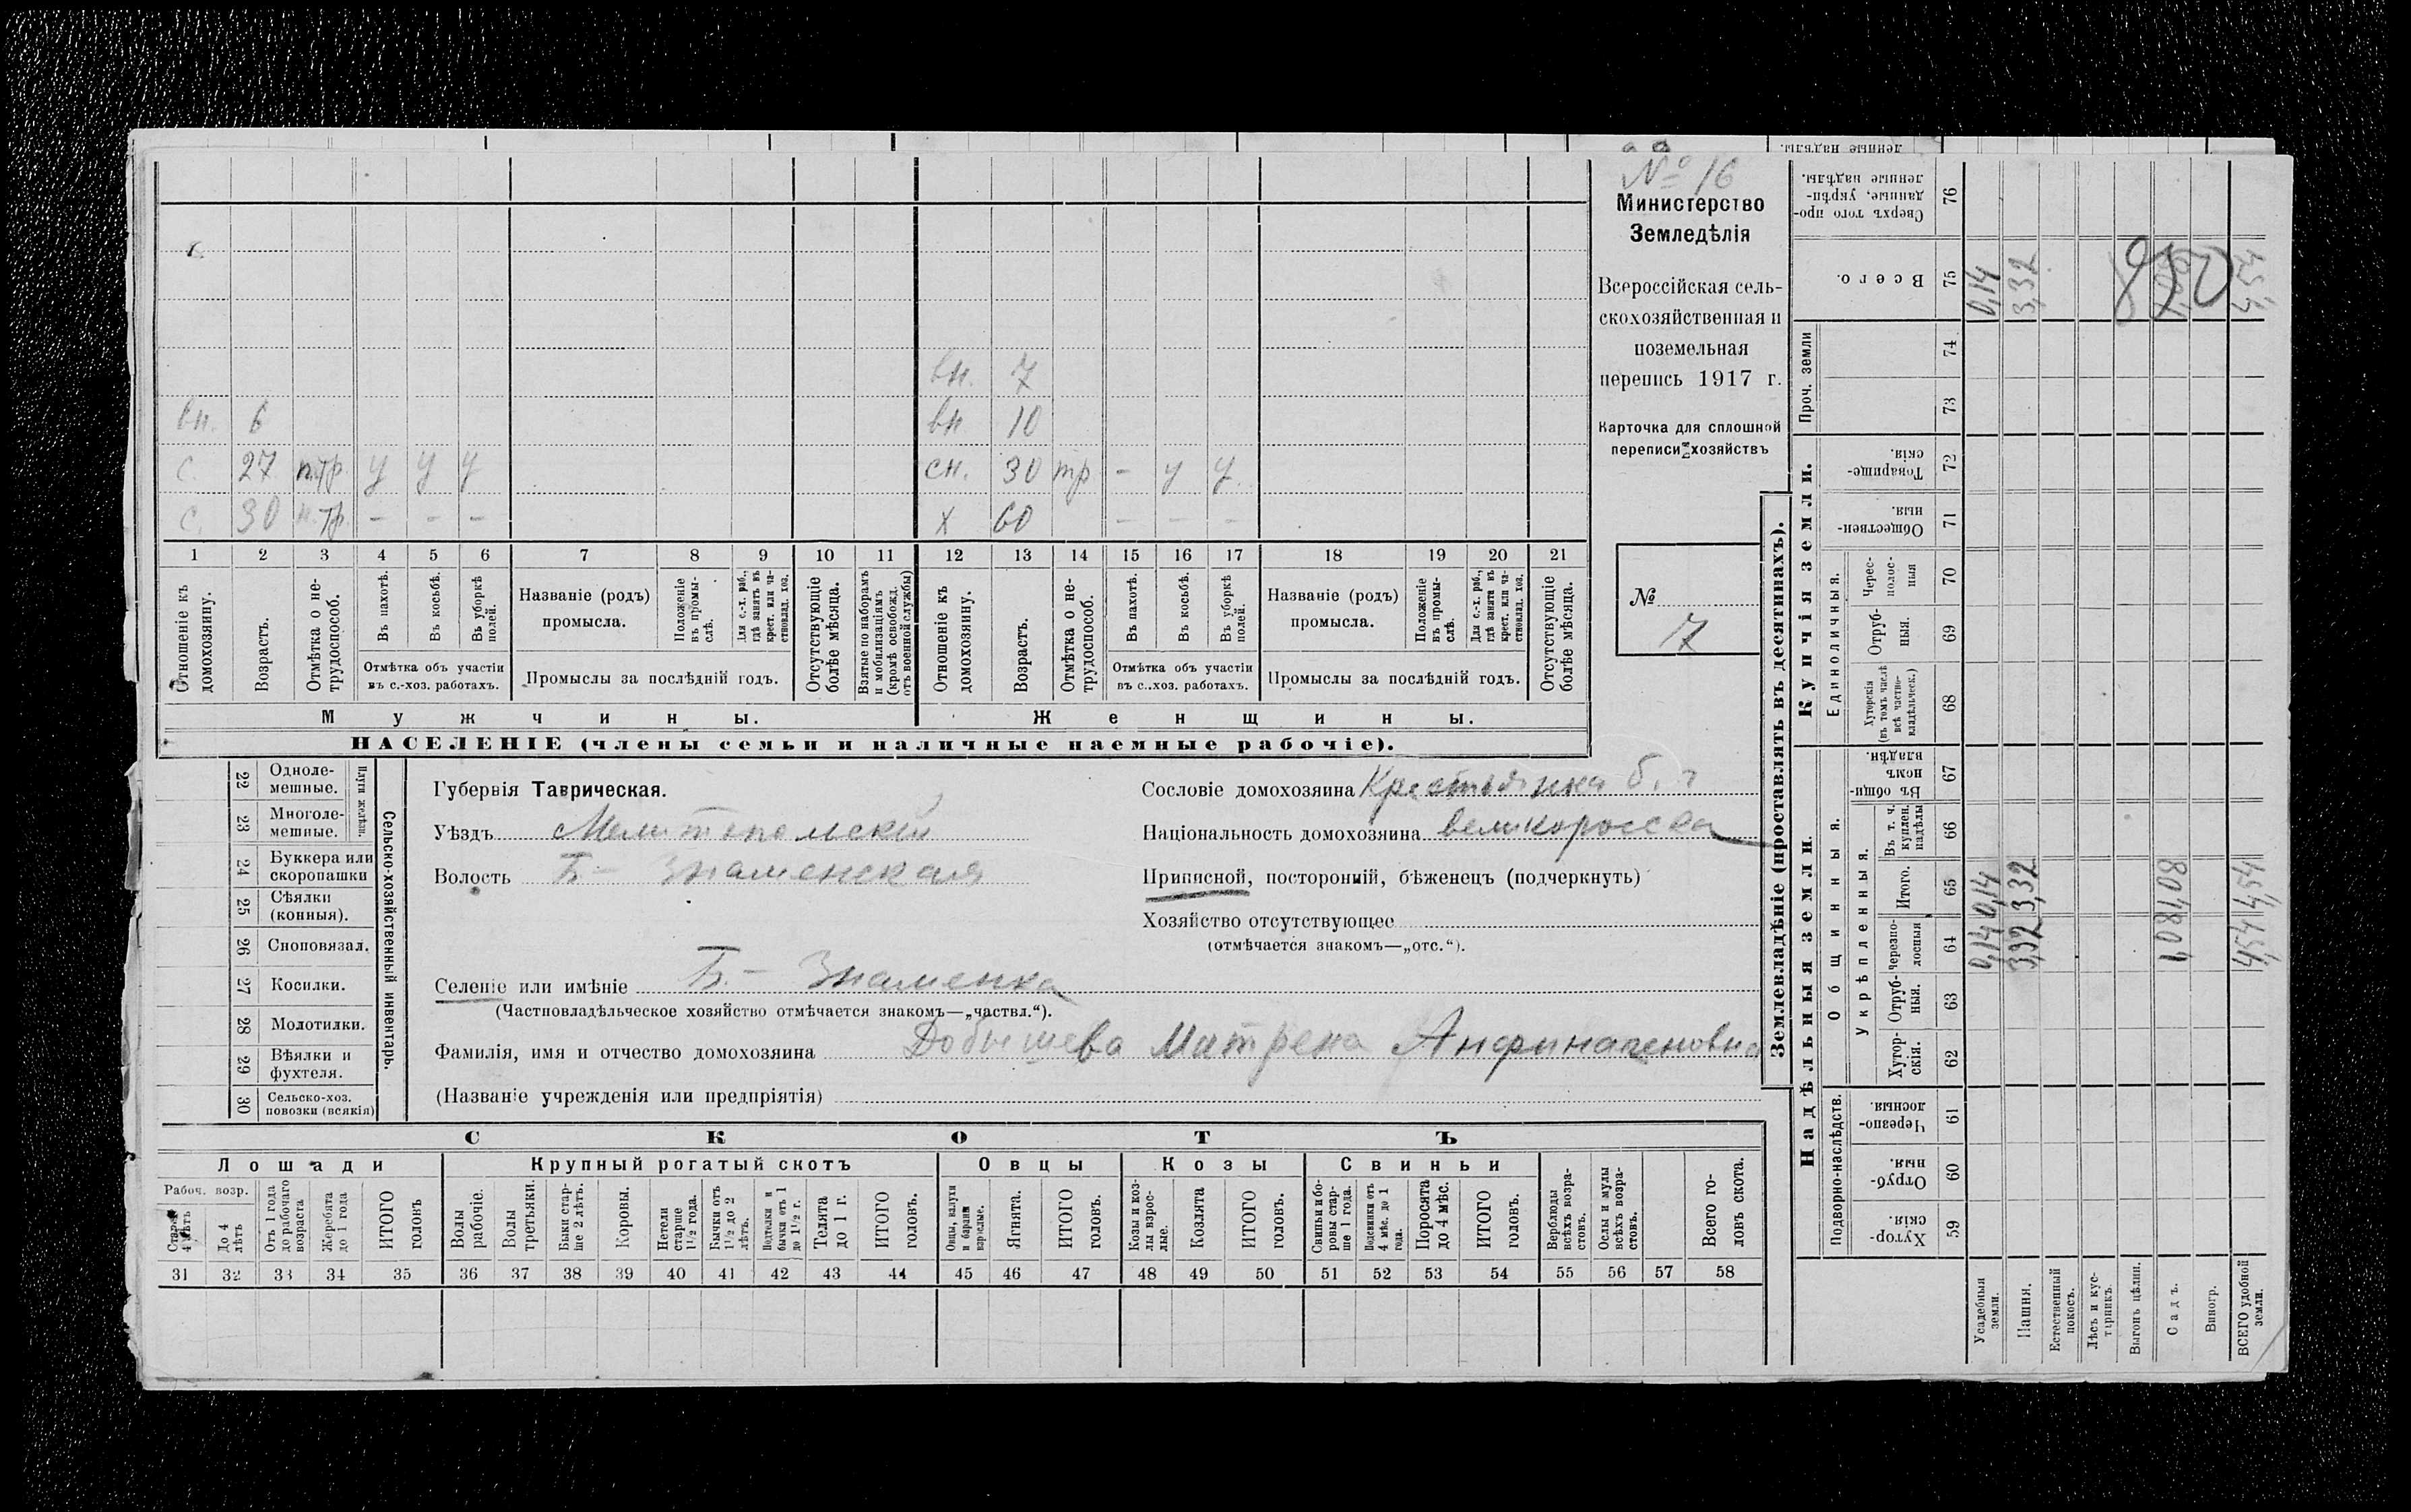 № 16
Министерство
Земледѣлія
Всероссійская сель-
скохозяйственная и
поземельная
перепись 1917 г.
Карточка для сплошной
переписи хозяйствъ
№
7
вн. 7
вн. 6 вн 10
с. 27 н.тр. у у у сн. 30 тр - у у
с. 30 н.тр. - - - х 60 - - -
1 2 3 4 5 6 7 8 9 10 11 12 13 14 15 16 17 18 19 20 21
Отношеніе къ домохозяину.
Возрастъ.
Отмѣтка о не-трудоспособ.
Въ пахотѣ.
Въ косьбѣ.
Въ уборкѣ полей.
Отмѣтка объ участіи
въ с.-хоз. работахъ.
Названіе (родъ)
промысла.
Положеніе въ промы-слѣ.
Для с.-х. раб., гдѣ занятъ въ крест. или ча-стновлад. хоз.
Промыслы за послѣдній годъ.
Отсутствующіе болѣе мѣсяца.
Взятые по наборамъ и мобилизаціямъ (кромѣ освобожд. отъ военной службы)
Отношеніе къ домохозяину.
Возрастъ.
Отмѣтка о не-трудоспособ.
Въ пахотѣ.
Въ косьбѣ.
Въ уборкѣ полей.
Отмѣтка объ участіи
въ с.-хоз. работахъ.
Названіе (родъ)
промысла.
Положеніе въ промы-слѣ.
Для с.-х. раб., гдѣ занята въ крест. или ча-стновлад. хоз.
Промыслы за послѣдній годъ.
Отсутствующіе болѣе мѣсяца.
Мужчины. Женщины.
НАСЕЛЕНІЕ (члены семьи и наличные наемные рабочіе).
Сельско-хозяйственный инвентарь.
Плуги желѣзн.
22 Одноле-мешные.
23 Многоле-мешные.
24 Буккера или скоропашки
25 Сѣялки (конныя).
26 Сноповязал.
27 Косилки.
28 Молотилки.
29 Вѣялки и фухтеля.
30 Сельско-хоз. повозки (всякія)
Губернія Таврическая.
Уѣздъ Мелитопольскій
Волость Б- Знаменская
Селеніе или имѣніе Б- Знаменка
(Частновладѣльческое хозяйство отмѣчается знакомъ—„частвл.“).
Фамилія, имя и отчество домохозяина Добышева Матрена
(Названіе учрежденія или предпріятія)
Сословіе домохозяина Крестьянка
Національность домохозяина великоросска
Приписной, посторонній, бѣженецъ (подчеркнуть)
Хозяйство отсутствующее
(отмѣчается знакомъ—„отс.“).
СКОТЪ
Лошади Крупный рогатый скотъ Овцы Козы Свиньи
Рабоч. возр.
Старше 4 лѣтъ
До 4 лѣтъ
Отъ 1 года до рабочаго возраста
Жеребята до 1 года
ИТОГО головъ
Волы рабочіе.
Волы третьяки.
Быки стар-ше 2 лѣтъ.
Коровы.
Нетели старше 1½ года.
Бычки отъ 1½ до 2 лѣтъ.
Подтелки и бычки отъ 1 до 1½ г.
Телята до 1 г.
ИТОГО головъ.
Овцы, валухи и бараны взрослые.
Ягнята.
ИТОГО головъ.
Козы и коз-лы взрос-лые.
Козлята
ИТОГО головъ.
Свиньи и бо-ровы стар-ше 1 года.
Подсвинки отъ 4 мѣс. до 1 года.
Поросята до 4 мѣс.
ИТОГО головъ.
Верблюды всѣхъ возра-стовъ.
Ослы и мулы всѣхъ возра-стовъ.
Всего го-ловъ скота.
31 32 33 34 35 36 37 38 39 40 41 42 43 44 45 46 47 48 49 50 51 52 53 54 55 56 57 58
Землевладѣніе (проставлять въ десятинахъ).
Надѣльныя земли. Купчія земли. Проч. земли
Подворно-наслѣдств.
Общинныя.
Укрѣпленныя.
Единоличныя.
Хутор-скія. 59
Отруб-ныя. 60
Черезпо-лосныя. 61
Хутор-скія. 62
Отруб-ныя. 63
Черезпо-лосныя 64
Итого. 65
Въ т. ч. куплен. надѣлы 66
Въ общи-номъ владѣн. 67
Хуторскія (въ томъ числѣ всѣ частно-владѣльческ.) 68
Отруб-ныя. 69
Черес-полос-ныя 70
Обществен-ныя. 71
Товарище-скія. 72
73
74
Всего. 75
Сверхъ того про-данные, укрѣп-ленные надѣлы. 76
Усадебныя земли. 0,14 0,14 0,14
Пашня. 3,32 3,32 3,32
Естественный покосъ.
Лѣсъ и кус-тарникъ.
Выгонъ цѣлин.
Садъ. 1,08 1,08
Виногр.
ВСЕГО удобной земли. 4,54 4,54 4,54